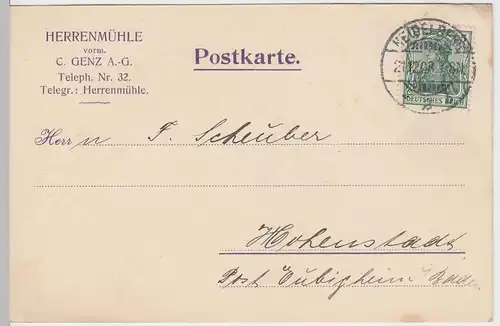 HERRENMÜHLE
vorm.
C. GENZ A.-G.
Teleph. Nr. 32.
Telegr.: Herrenmühle.
Postkarte.
HEIDELBERG
DEUTSCHES REICH
Herrn F. Scheuber
Hohenstadt
Post Eubigheim Baden